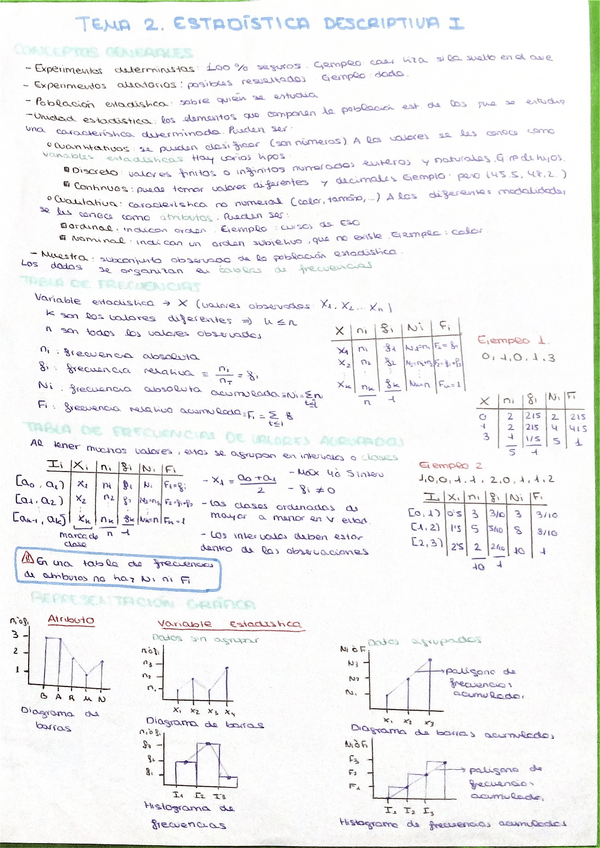 TEMA 2. ESTADÍSTICA DESCRIPTIVA I
CONCEPTOS GENERALES
- Experimentos deterministas: 100% seguros. Ejemplo caer tiza si la suelto en el aire
- Experimentos aleatorios: posibles resultados Ejemplo: dado.
- Población estadística: sobre quién se estudia
- Unidad estadística: los elementos que componen la población est de los que se estudia
una característica determinada. Pueden ser:
Cuantitativos se pueden clasificar (son números) A los valores se les conoce como
variables estadísticas Hay varios tipos:
Discreto valores finitos o infinitos numerados enteros y naturales. Ej nº de hijos.
Continuos: puede tomar valores diferentes y decimales Ejemplo: peso (45.5, 47.2)
Cualitativa: característica no numeral (color, tamaño,...) A las diferentes modalidades
se les conoce como atributos. Pueden ser:
Ordinal: indican orden. Ejemplo: cursos de ESO
Nominal: indican un orden subjetivo, que no existe. Ejemplo: color
- Muestra: subconjunto observado de la población estadística.
Los datos se organizan en tablas de frecuencias
TABLA DE FRECUENCIAS
Variable estadística → X (valores observados X1, X2... Xk)
k son los valores diferentes ⇒ k ≤ n
n son todos los valores observados
ni: frecuencia absoluta
fi: frecuencia relativa = ni/nT = fi
Ni: frecuencia absoluta acumulada = Ni = Σ n
Fi: frecuencia relativa acumulada = Fi = Σ f
X ni fi Ni Fi
X1 n1 f1 N1=n1 F1=f1
X2 n2 f2
Xk nk fk Nk=n Fk=1
n 1
Ejemplo 1.
0, 1, 0, 1, 3
X ni fi Ni Fi
0 2 2/5 2 2/5
1 2 2/5 4 4/5
3 1 1/5 5 1
5 1
TABLA DE FRECUENCIAS DE VALORES AGRUPADOS
Al tener muchos valores, estos se agrupan en intervalos o clases
Ii Xi ni fi Ni Fi
[a0, a1) X1 n1 f1 N1 F1=f1
[a1, a2) X2 n2 f2
[ak-1, ak] Xk nk fk Nk=n Fk=1
marca de clase n 1
- X1 = a0+a1/2
- Máx 4 ó 5 interv
- fi ≠ 0
- Las clases ordenadas de
mayor a menor en V estad.
- Los intervalos deben estar
dentro de las observaciones
Ejemplo 2
1,0,0,1,1,2,0,1,1,2
I Xi ni fi Ni Fi
[0,1) 0'5 3 3/10 3 3/10
[1,2) 1'5 5 5/10 8 8/10
[2,3) 2'5 2 2/10 10 1
10 1
En una tabla de frecuencias
de atributos no hay Ni ni Fi
REPRESENTACIÓN GRÁFICA
Atributo
3
2
1
B A R M N
Diagrama de
barras
Variable Estadística
Datos sin agrupar
X1 X2 X3 X4
Diagrama de barras
I1 I2 I3
Histograma de
frecuencias
Datos agrupados
Ni ó Fi
X1 X2 X3
polígono de
frecuencias
acumuladas
Diagrama de barras acumuladas
Ni ó Fi
F3
F2
F1
I1 I2 I3
polígono de
frecuencias
acumuladas
Histograma de frecuencias acumuladas